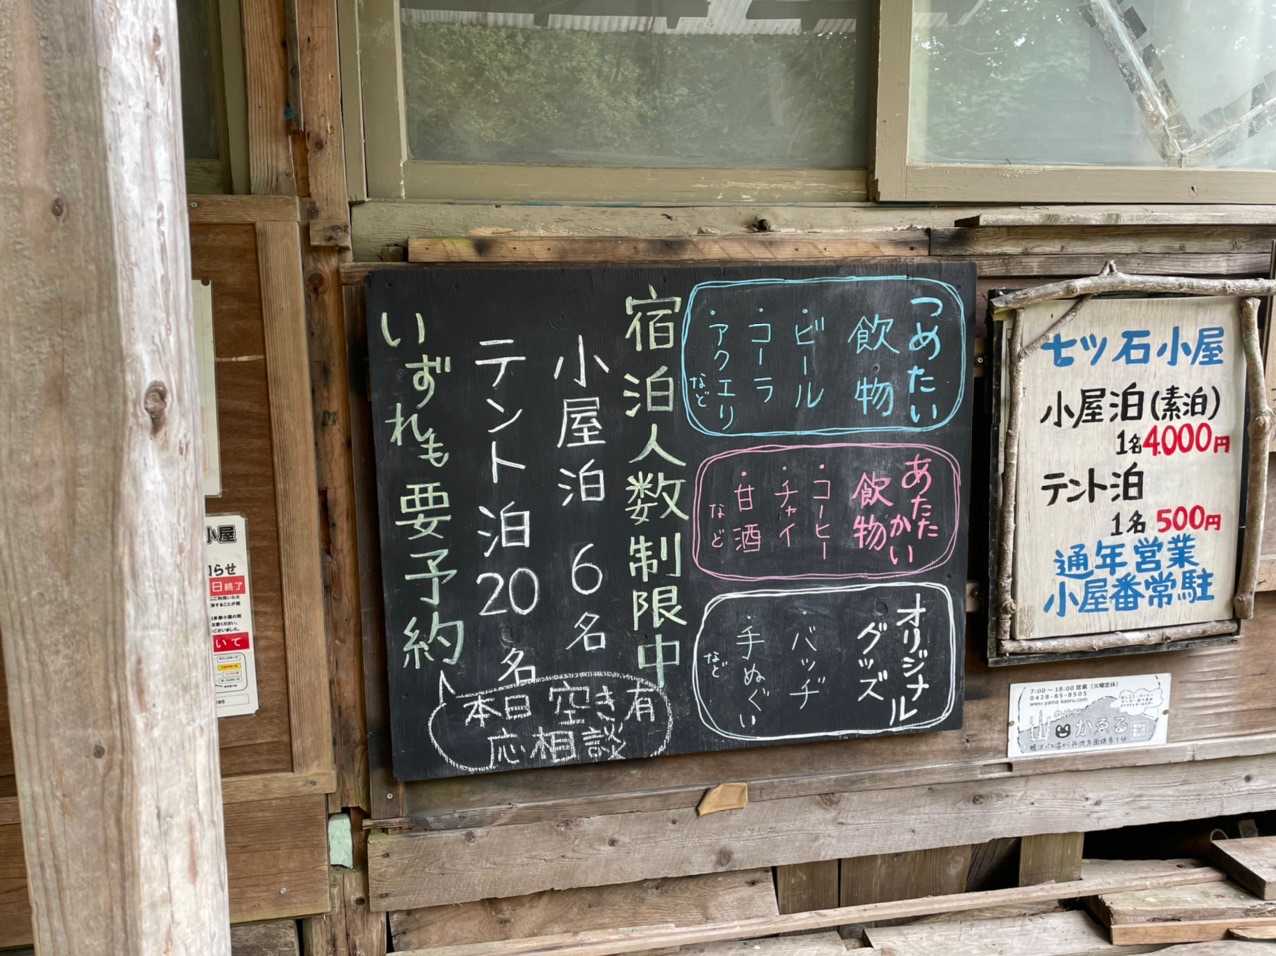 つめたい
飲物
・ビール
・コーラ
・アクエリ
など
あたたかい
飲物
・コーヒー
・チャイ
・甘酒
など
オリジナル
グッズ
・バッヂ
・手ぬぐい
など
宿泊人数制限中
小屋泊 6名
テント泊 20名
いずれも要予約
本日空き有
応相談
七ツ石小屋
小屋泊(素泊)
1名4000円
テント泊
1名500円
通年営業
小屋番常駐
7:00〜18:00 営業 (火曜定休)
0428-85-8505
かゑる
小屋
らせ
日終了
いて